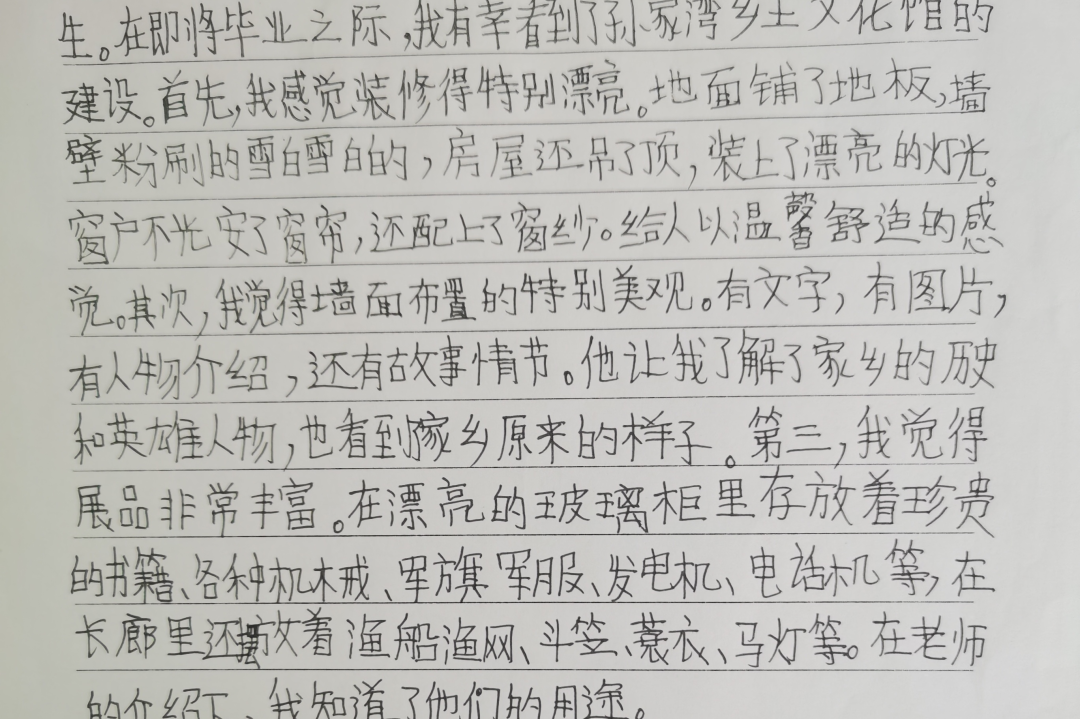 生。在即将毕业之际,我有幸看到了孙家湾乡土文化馆的
建设。首先,我感觉装修得特别漂亮。地面铺了地板,墙
壁粉刷的雪白雪白的,房屋还吊了顶,装上了漂亮的灯光。
窗户不光安了窗帘,还配上了窗纱。给人以温馨舒适的感
觉。其次,我觉得墙面布置的特别美观。有文字,有图片,
有人物介绍,还有故事情节。他让我了解了家乡的历史
和英雄人物,也看到家乡原来的样子。第三,我觉得
展品非常丰富。在漂亮的玻璃柜里存放着珍贵
的书籍、各种机械、军旗军服、发电机、电话机等,在
长廊里还摆放着渔船渔网、斗笠、蓑衣、马灯等。在老师
的介绍下,我知道了他们的用途。